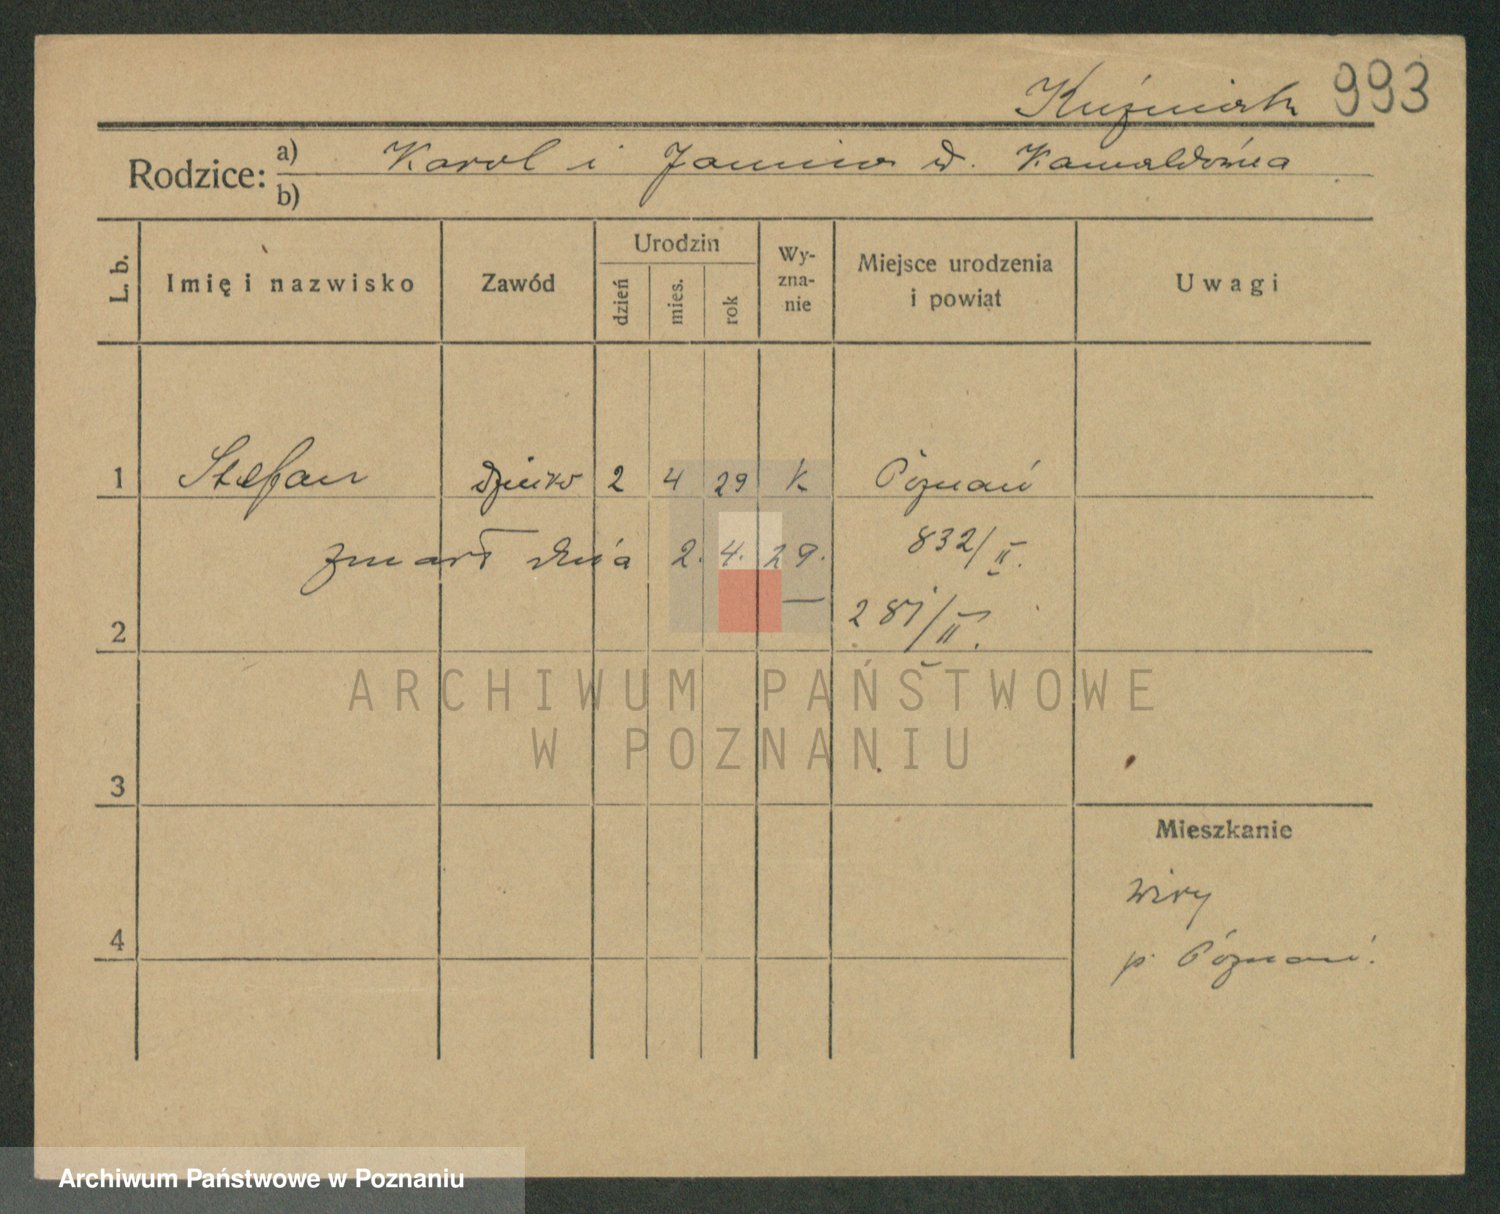 Kuźniak 993
Rodzice: a) Karol i Janina d.
b)
L. b.
Imię i nazwisko
Zawód
Urodzin
dzień
mies.
rok
Wy-
zna-
nie
Miejsce urodzenia
i powiat
Uwagi
1 Stefan Dziecko 2 4 29 k Poznań
zmarł dnia 2. 4. 29. 832/II.
2 281/II.
ARCHIWUM PAŃSTWOWE
W POZNANIU
3
Mieszkanie
Wiry
4 p. Poznań.
Archiwum Państwowe w Poznaniu